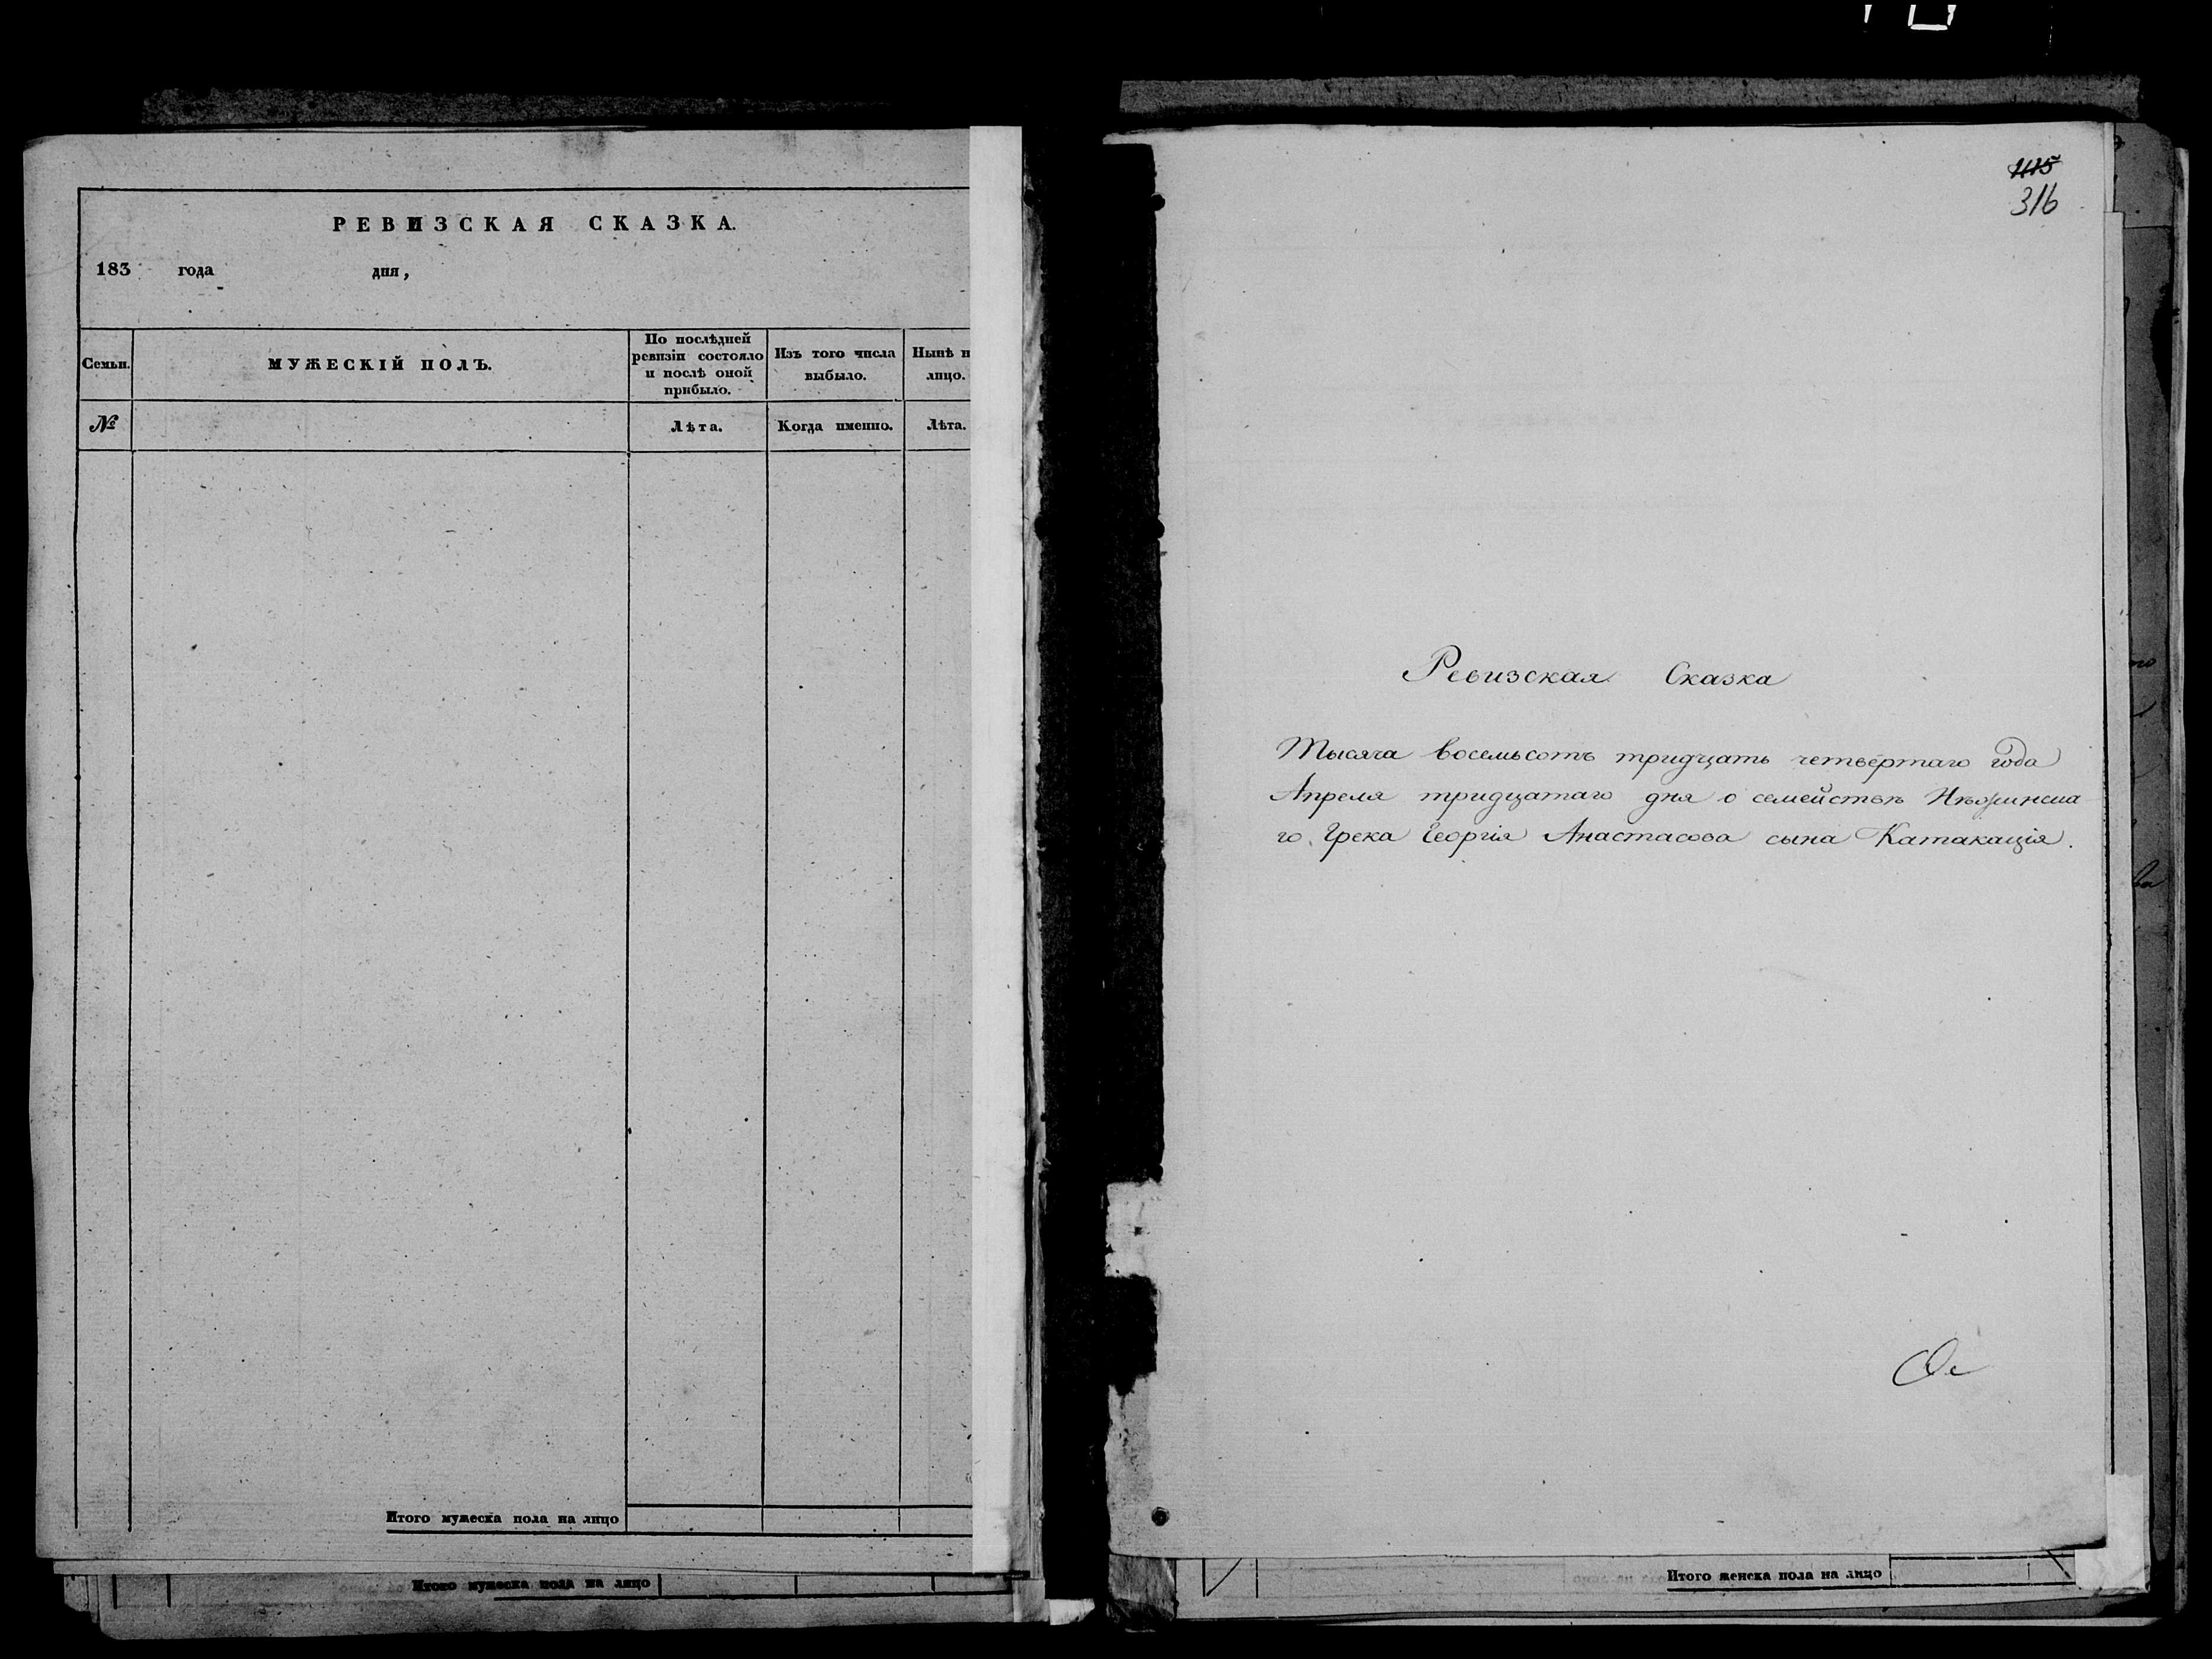 РЕВИЗСКАЯ СКАЗКА.
183 года дня,
Семьи.
МУЖЕСКІЙ ПОЛЪ.
По послѣдней
ревизіи состояло
и послѣ оной
прибыло.
Изъ того числа
выбыло.
Нынѣ н
лицо.
№
Лѣта.
Когда именно.
Лѣта.
Итого мужеска пола на лицо
Итого мужеска пола на лицо
316
Ревизская Сказка
Тысяча восемьсотъ тридцать четвертаго года
Апреля тридцатаго дня о семействѣ Нѣжинска
го Грека Георгія Анастасова сына Катакація.
Итого женска пола на лицо